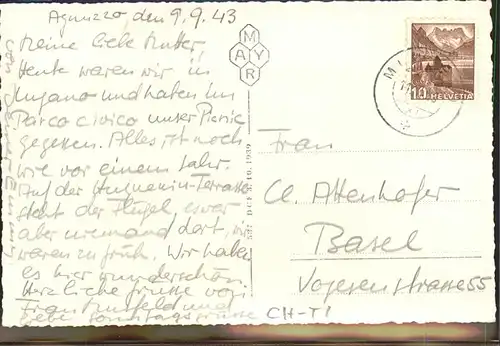 Agnuzzo, den 9.9.43
Meine liebe Mutter,
Heute waren wir in
Lugano und haben im
Parco civico unser Picnic
gegessen. Alles ist noch
wie vor einem Jahr.
Auf der Huguenin-Terrasse
steht der Flügel, es war
aber niemand dort, wir
waren zu früh. Wir haben
es hier wunderschön
Herzliche Grüsse von
Frau und
CH-TI
MAYR
10 HELVETIA
Frau
Cl. Attenhofer
Basel
Vogesenstrasse 55